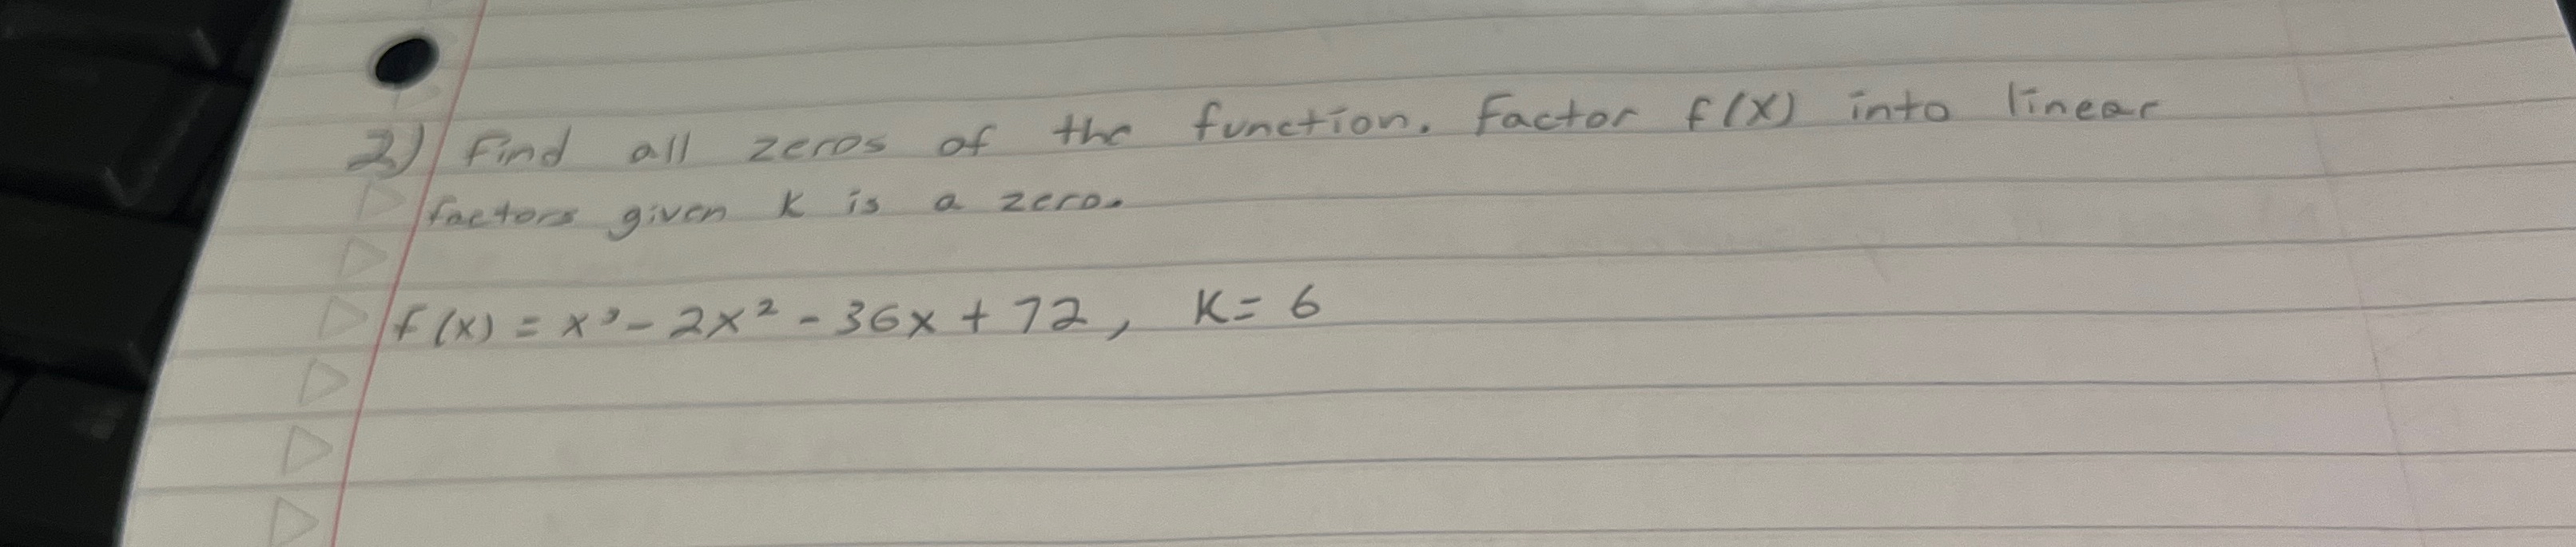 2) Find all zeros of the function. Factor f(x) into linear
factors given K is a zero.
f(x) = x³ - 2x² - 36x + 72, K = 6